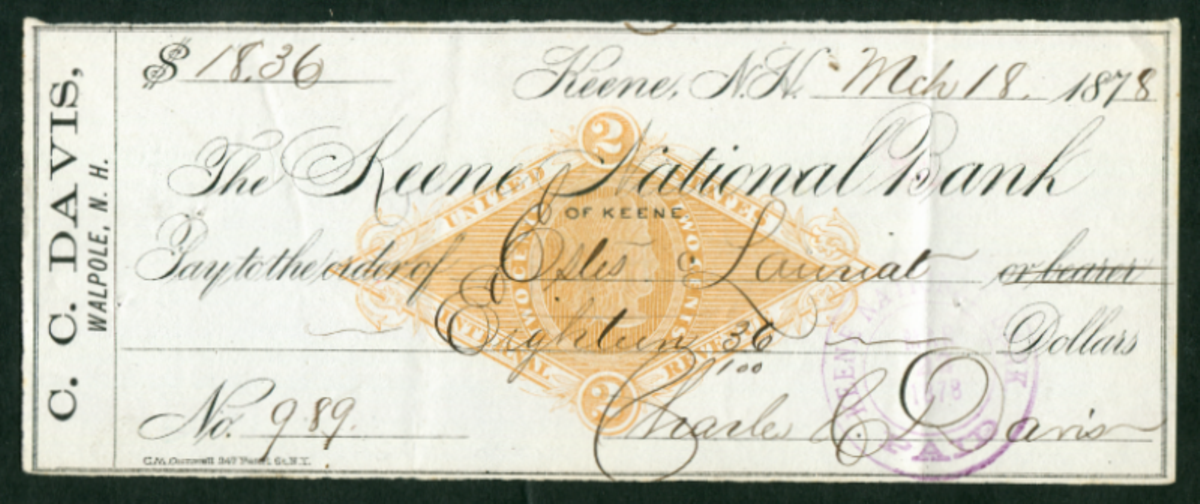 C. C. DAVIS,
WALPOLE, N. H.
$ 18.36
Keene, N.H. Mch 18, 1878
The Keene National Bank
OF KEENE
Pay to the order of Estes & Lauriat or bearer
Eighteen 36/100 Dollars
No. 989.
Charles C. Davis
2
UNITED STATES
TWO CENTS
TWO CENTS
INTERNAL REVENUE
2
KEENE NATIONAL BANK
1878
PAID